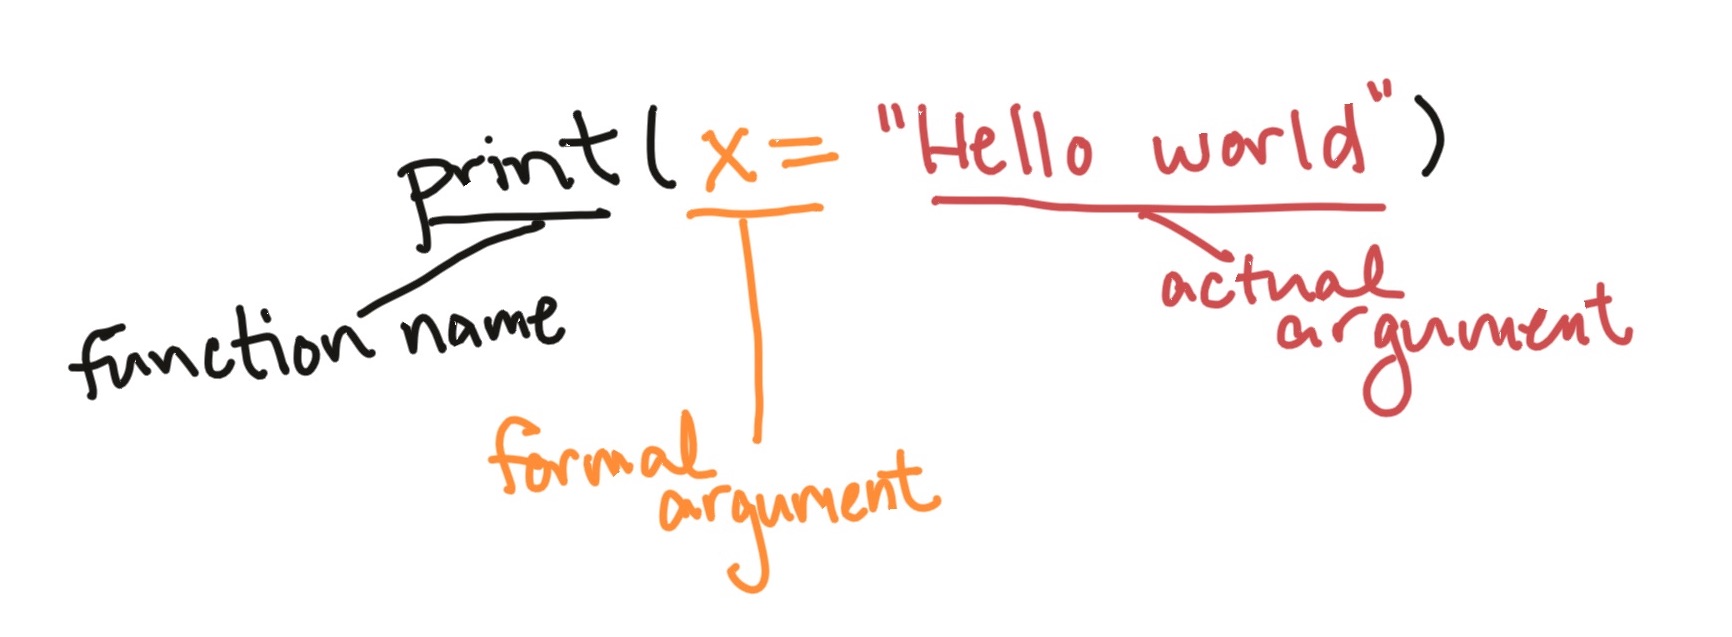 print( x = "Hello world" )
function name
actual
argument
formal
argument